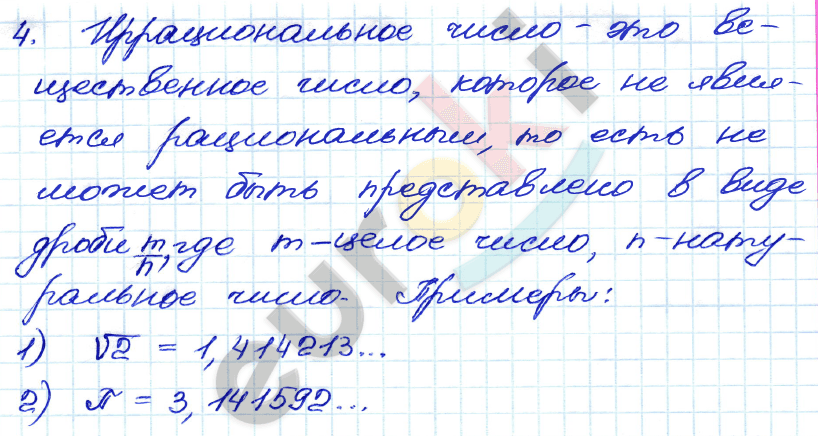 4. Иррациональное число - это ве-
щественное число, которое не явля-
ется рациональным, то есть не
может быть представлено в виде
дроби m/n, где m - целое число, n - нату-
ральное число. Примеры:
1) √2 = 1,414213...
2) π = 3,141592...
euroki